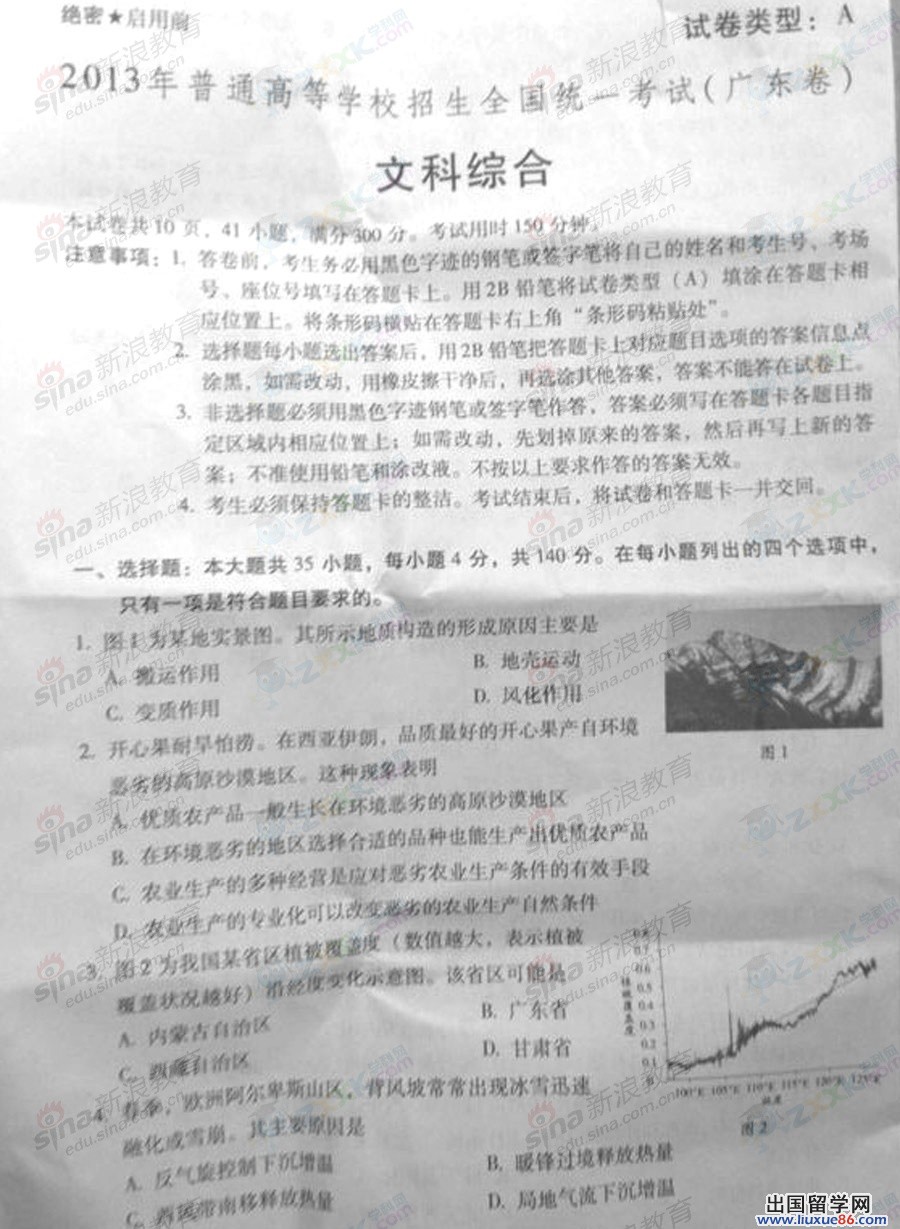 绝密★启用前
试卷类型：A
2013年普通高等学校招生全国统一考试（广东卷）
文科综合
本试卷共10页，41小题，满分300分。考试用时150分钟。
注意事项：1. 答卷前，考生务必用黑色字迹的钢笔或签字笔将自己的姓名和考生号、考场
号、座位号填写在答题卡上。用2B铅笔将试卷类型（A）填涂在答题卡相
应位置上。将条形码横贴在答题卡右上角“条形码粘贴处”。
2. 选择题每小题选出答案后，用2B铅笔把答题卡上对应题目选项的答案信息点
涂黑，如需改动，用橡皮擦干净后，再选涂其他答案，答案不能答在试卷上。
3. 非选择题必须用黑色字迹钢笔或签字笔作答，答案必须写在答题卡各题目指
定区域内相应位置上；如需改动，先划掉原来的答案，然后再写上新的答
案；不准使用铅笔和涂改液。不按以上要求作答的答案无效。
4. 考生必须保持答题卡的整洁。考试结束后，将试卷和答题卡一并交回。
一、选择题：本大题共35小题，每小题4分，共140分。在每小题列出的四个选项中，
只有一项是符合题目要求的。
1. 图1为某地实景图。其所示地质构造的形成原因主要是
A. 搬运作用 B. 地壳运动
C. 变质作用 D. 风化作用
图1
2. 开心果耐旱怕涝。在西亚伊朗，品质最好的开心果产自环境
恶劣的高原沙漠地区。这种现象表明
A. 优质农产品一般生长在环境恶劣的高原沙漠地区
B. 在环境恶劣的地区选择合适的品种也能生产出优质农产品
C. 农业生产的多种经营是应对恶劣农业生产条件的有效手段
D. 农业生产的专业化可以改变恶劣的农业生产自然条件
3. 图2为我国某省区植被覆盖度（数值越大，表示植被
覆盖状况越好）沿经度变化示意图。该省区可能是
A. 内蒙古自治区 B. 广东省
C. 西藏自治区 D. 甘肃省
植被覆盖度
0.8
0.7
0.6
0.5
0.4
0.3
0.2
0.1
0
100°E 105°E 110°E 115°E 120°E 125°E
经度
图2
4. 春季，欧洲阿尔卑斯山区，背风坡常常出现冰雪迅速
融化或雪崩。其主要原因是
A. 反气旋控制下沉增温 B. 暖锋过境释放热量
C. 西风带南移释放热量 D. 局地气流下沉增温
sina新浪教育
edu.sina.com.cn
出国留学网
www.liuxue86.com